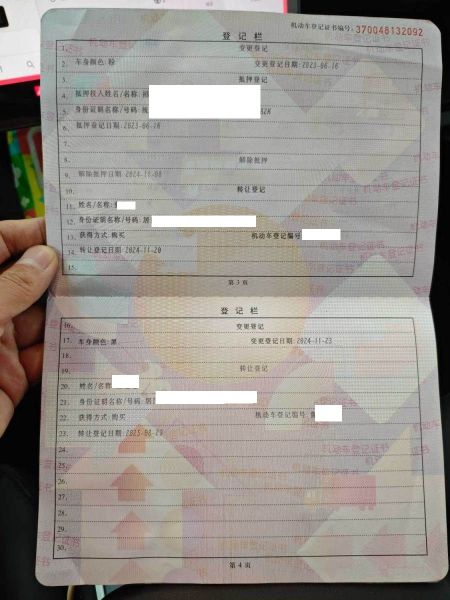 机动车登记证书编号: 370048132092
登记栏
1. 变更登记
2. 车身颜色: 粉 变更登记日期: 2023-06-16
3. 抵押登记
4. 抵押权人姓名/名称:
5. 身份证明名称/号码: 2K
6. 抵押登记日期: 2023-06-16
7.
8. 解除抵押
9. 解除抵押日期: 2024-11-08
10. 转让登记
11. 姓名/名称:
12. 身份证明名称/号码: 居
13. 获得方式: 购买 机动车登记编号
14. 转让登记日期: 2024-11-20
15.
第3页
登记栏
16. 变更登记
17. 车身颜色: 黑 变更登记日期: 2024-11-23
18.
19. 转让登记
20. 姓名/名称
21. 身份证明名称/号码: 居
22. 获得方式: 购买 机动车登记编号:
23. 转让登记日期:
24.
25.
26.
27.
28.
29.
30.
第4页